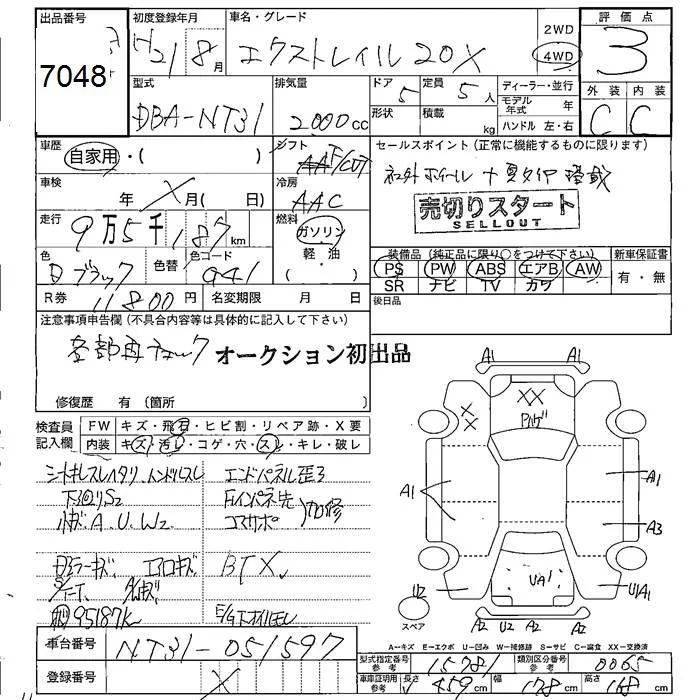 出品番号
7048
初度登録年月
H21 8月
車名・グレード
エクストレイル 20X
2WD
4WD
評価点
3
外装 内装
C C
型式
DBA-NT31
排気量
2000cc
ドア
5
形状
定員
5人
積載
kg
ディーラー・並行
モデル年式 年
ハンドル 左・右
車歴
自家用・( )
シフト
車検
年 月( 日)
冷房
AAC
走行
9万5千187km
燃料
ガソリン
軽・油
( )
色
ブラック
色替
色コード
G41
R券
11800円
名変期限 月 日
セールスポイント(正常に機能するものに限ります)
社外ホイール + 夏タイヤ積載
売切りスタート
SELLOUT
装備品(純正品に限り○をつけて下さい)
PS PW ABS エアB AW
SR ナビ TV カワ
新車保証書
有・無
後日品
注意事項申告欄(不具合内容等は具体的に記入して下さい)
各部要チェック
オークション初出品
修復歴 有(箇所 )
検査員
記入欄
FW キズ・飛石・ヒビ割・リペア跡・X要
内装 キズ・汚レ・コゲ・穴・スレ・キレ・破レ
シートキレスレヘタリ ハンドルスレ
下廻りS2
小キズA.U.W2
エンドパネル歪
Fインパネ先
コアサポ
加修
BTX
95187K
E/Gオイルモレ
A1
A1
XX
XX
Pハゲ
A1
A1
A3
UA1
U2
U1A1
A2 U2 A2 A2
スペア
A−キズ E−エクボ U−凹み W−補修跡 S−サビ C−腐食 XX−交換済
車台番号
NT31-051597
登録番号
X
型式指定番号
参考
15781
類別区分番号
参考
0065
車庫証明用
参考
長さ 459cm
幅 178cm
高さ 168cm